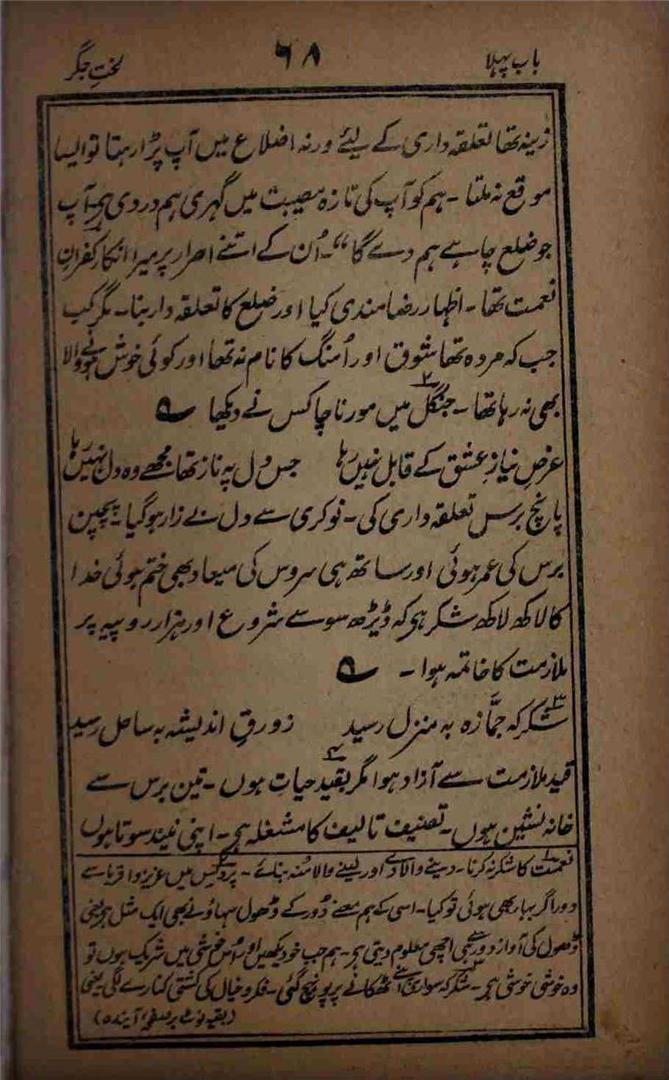 باب پہلا
۶۸
لختِ جگر
زینہ تھا تعلقہ داری کے لیئے ورنہ اضلاع میں آپ پڑا رہتا تو ایسا
موقع نہ ملتا ۔ ہم کو آپ کی تازہ مصیبت میں گہری ہم دردی ہی آپ
جو ضلع چاہے ہم دے گا“۔ اُن کے اتنے اصرار پر میرا انکار کفرانِ
نعمت تھا ۔ اظہارِ رضا مندی کیا اور ضلع کا تعلقہ دار بنا ۔ مگر کب
جب کہ مردہ تھا شوق اور اُمنگ کا نام نہ تھا اور کوئی خوش ہونے والا
بھی نہ رہا تھا ۔ جنگل میں مور ناچا کس نے دیکھا ۲ ؎
عرضِ نیازِ عشق کے قابل نہیں رہا جس دل پہ ناز تھا مجھے وہ دل نہیں رہا
پانچ برس تعلقہ داری کی ۔ نوکری سے دل بے زار ہو گیا ۔ پچپن
برس کی عمر ہوئی اور ساتھ ہی سروس کی میعاد بھی ختم ہوئی خدا
کا لاکھ لاکھ شکر ہی کہ ڈیڑھ سو سے شروع اور ہزار روپیہ پر
ملازمت کا خاتمہ ہوا ۔ ؎
۳ شکر کہ جمّازہ بہ منزل رسید زورقِ اندیشہ بہ ساحل رسید ۴
قیدِ ملازمت سے آزاد ہوا مگر بقیدِ حیات ہوں ۔ تین برس سے
خانہ نشین ہوں ۔ تصنیف تالیف کا مشغلہ ہی ۔ اپنی نیند سوتا ہوں
نعمت کا شکر نہ کرنا ۔ دینے والا دے اور لینے والا مُنہ بنائے ۔ پردیس میں عزیز و اقربا سے
دور اگر بہار بھی ہوئی تو کیا ۔ اسی کے ہم معنے دُور کے ڈھول سہاؤنے بھی ایک مثل ہی یعنی
ڈھول کی آواز دور سے بھی اچھی معلوم دیتی ہی ۔ ہم جب خود دیکھیں اور اُس خوشی میں شریک ہوں تو
وہ خوشی خوشی ہی ۔ شکر کہ سواری اپنے ٹھکانے پر پونہچ گئی ۔ فکر و خیال کی کشتی کنارے لگی یعنی
(بقیہ نوٹ بر صفحہ آیندہ)